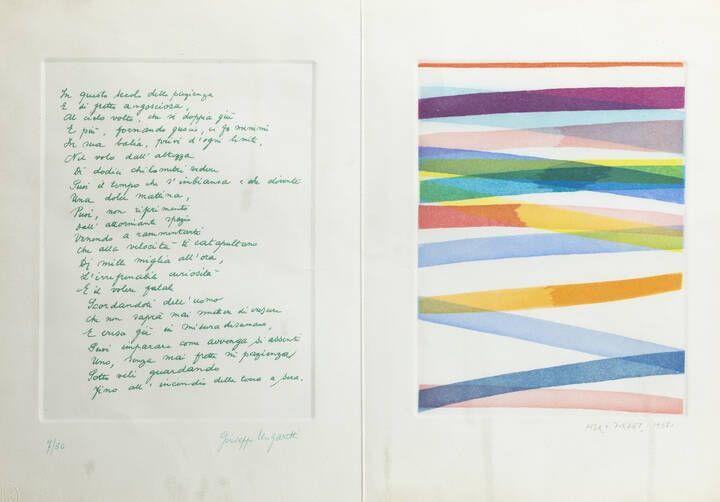 In questo secolo della pazienza
E di fretta angosciosa,
Al cielo volto, che si doppia giù
E più, formando guscio, ci fa minimi
In sua balia, privi d'ogni limite,
Nel volo dall'altezza
Di dodici chilometri vedere
Puoi il tempo che s'imbianca e che diventa
Una dolce mattina,
Puoi, non riferimento
Dall'attorniante spazio
Venendo a rammentarti
Che alla velocità ti catapultano
Di mille miglia all'ora,
L'irrefrenabile curiosità
E il volere fatale
Scordandoti dell'uomo
Che non saprà mai smettere di crescere
E cresce già in misura disumana,
Puoi imparare come avvenga si assenti
Uno, senza mai fretta nè pazienza
Sotto veli guardando
Fino all'incendio della terra a sera.
7/30
Giuseppe Ungaretti